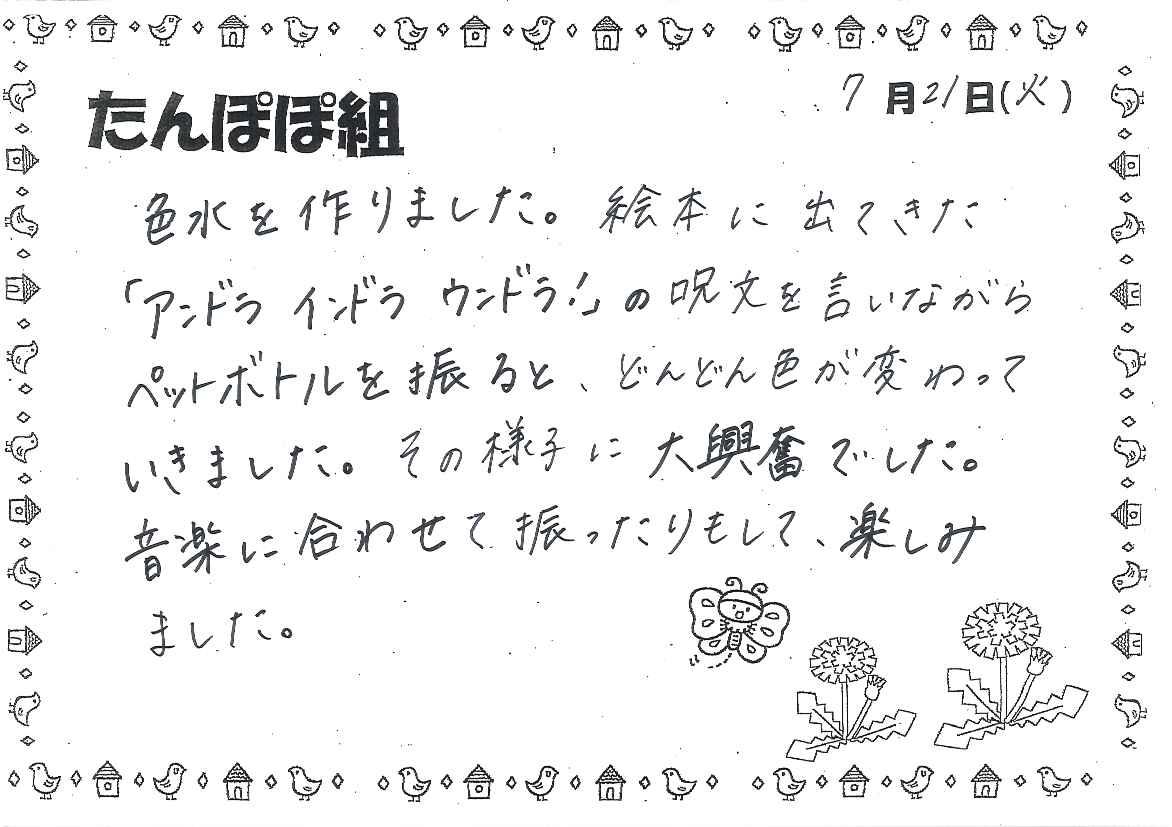 7月21日(火)
たんぽぽ組
色水を作りました。絵本に出てきた
「アンドラ インドラ ウンドラ!」の呪文を言いながら
ペットボトルを振ると、どんどん色が変わって
いきました。その様子に大興奮でした。
音楽に合わせて振ったりもして、楽しみ
ました。